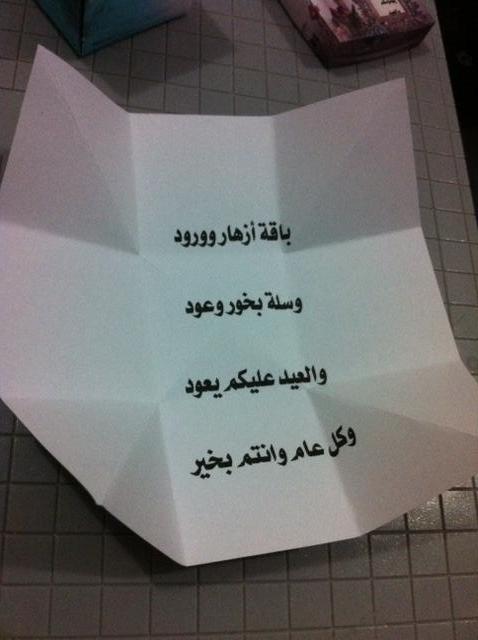 باقة أزهار وورود
وسلة بخور وعود
والعيد عليكم يعود
وكل عام وانتم بخير